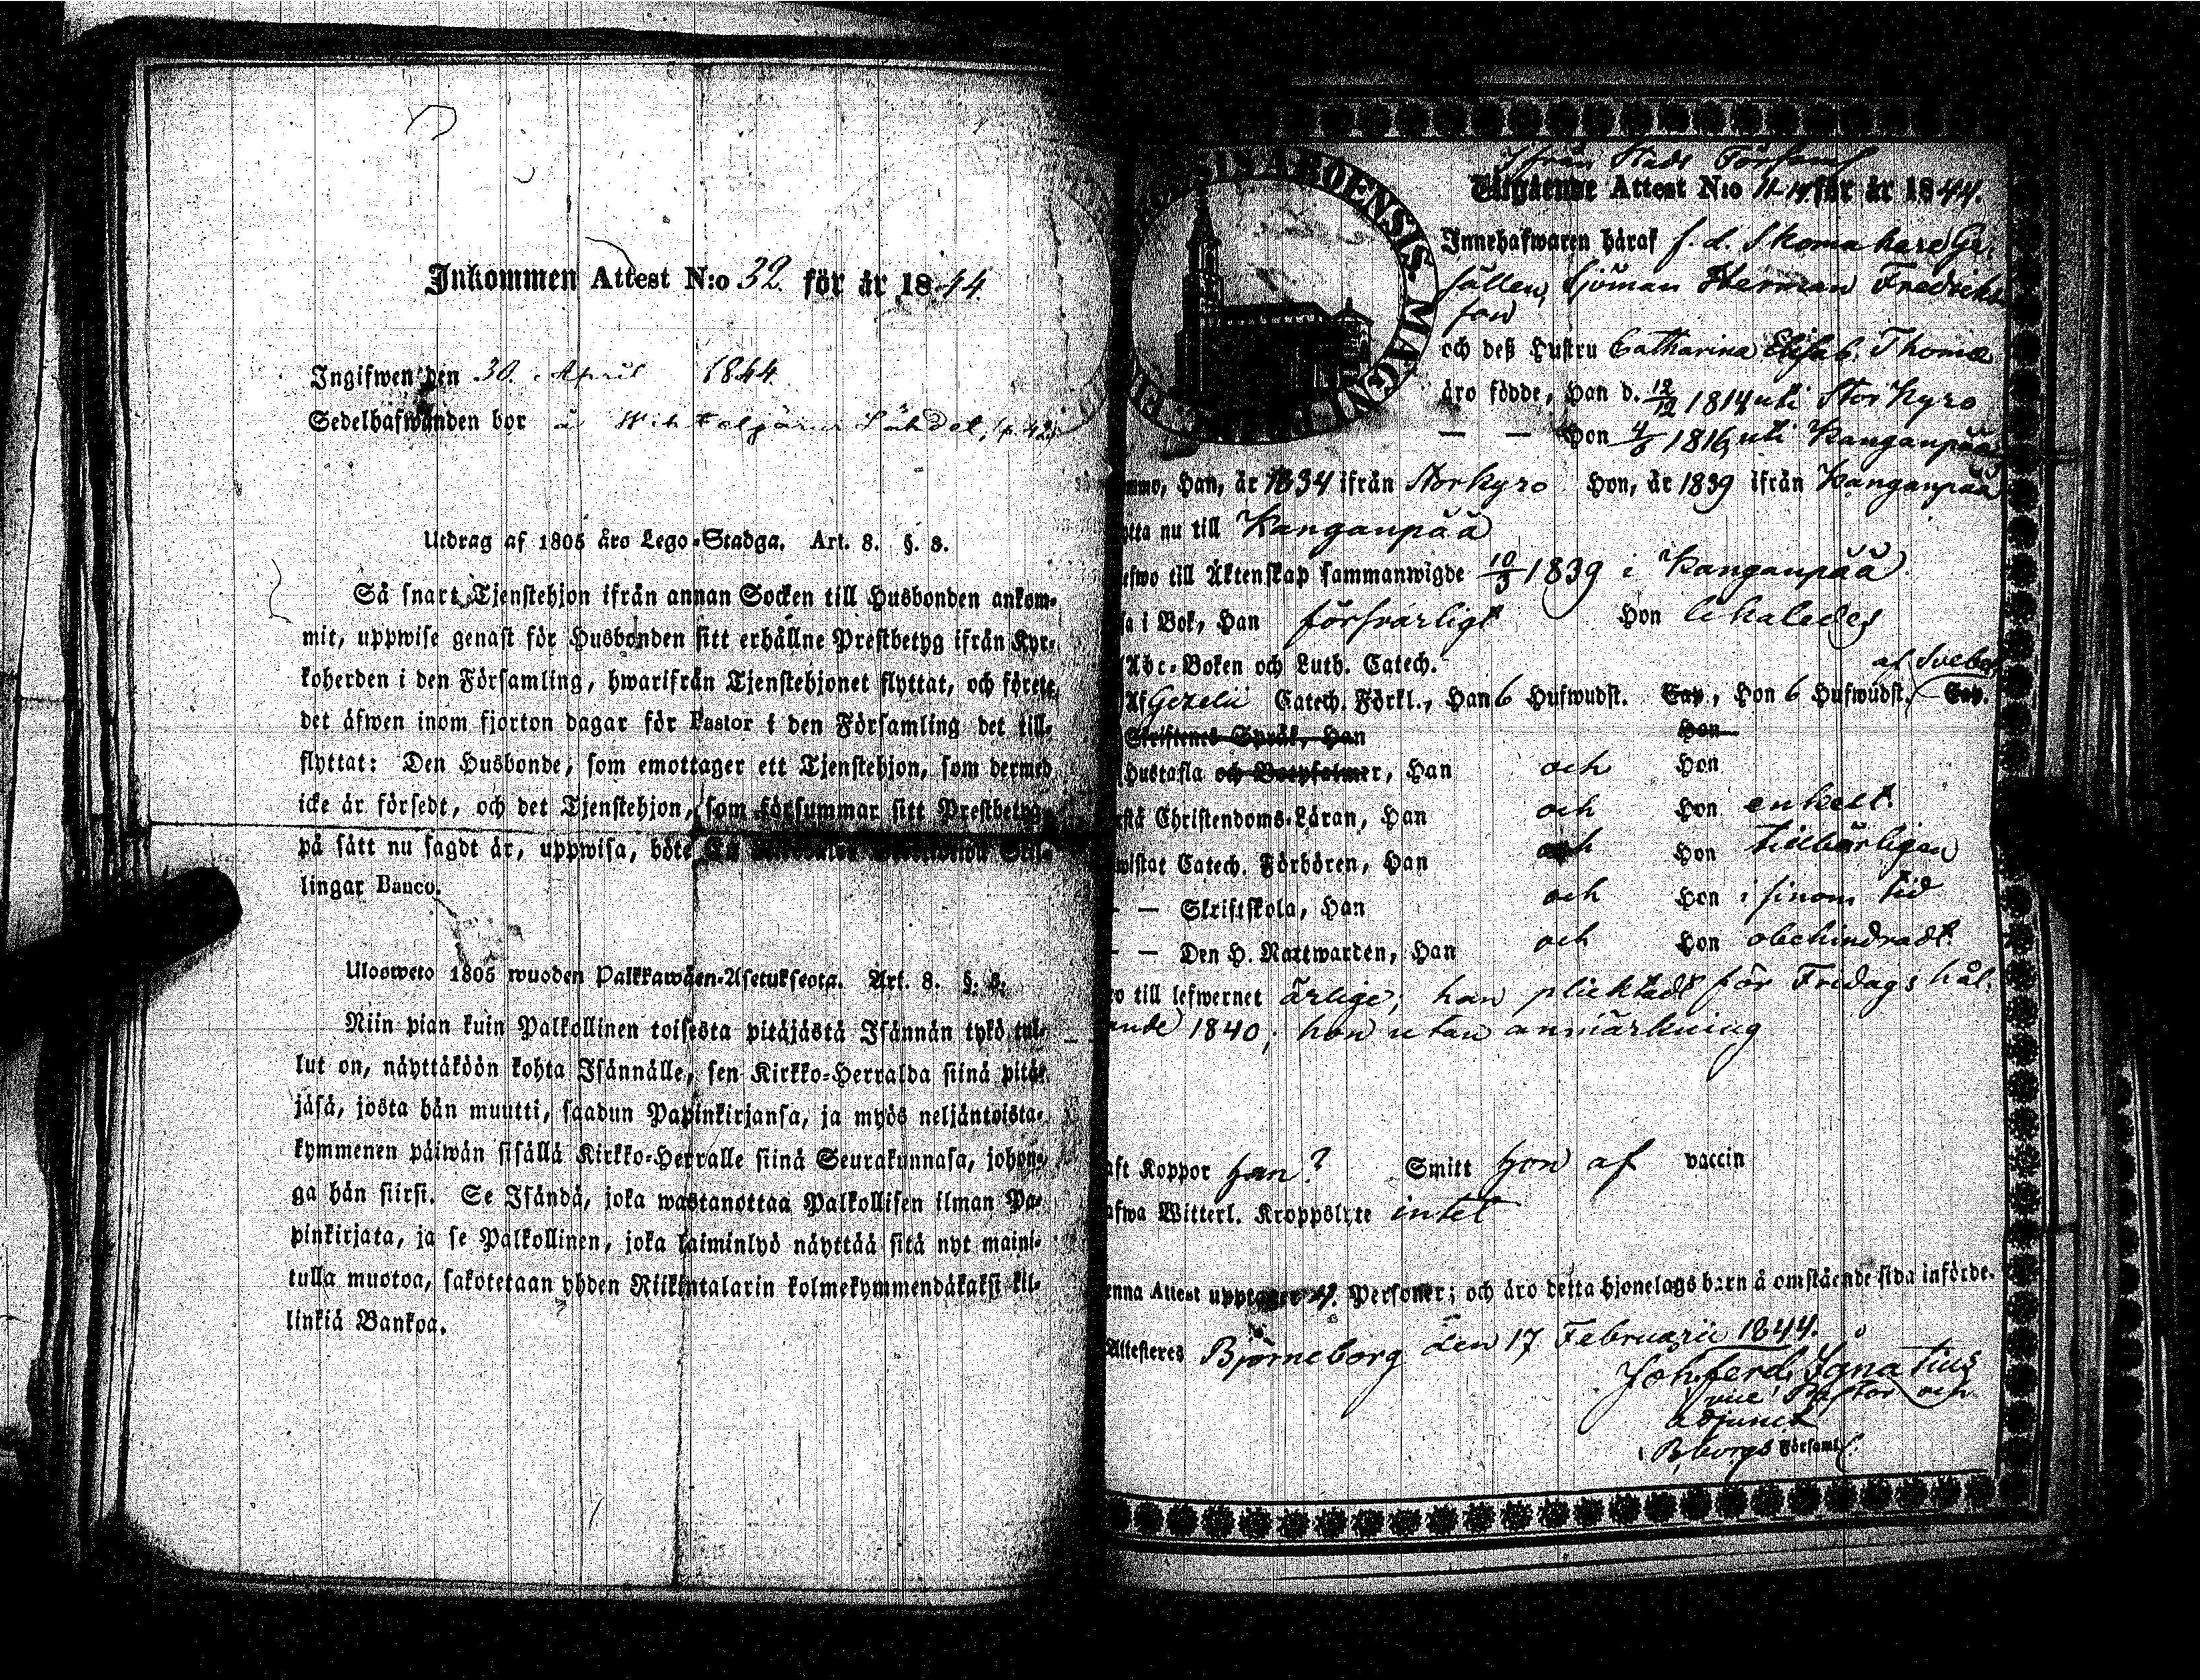 Inkommen Attest N:o 32. för år 1844.
Ingifwen den 30. April 1844.
Sedelhafwanden bor å
Utdrag af 1805 års Lego-Stadga. Art. 8. §. 8.
Så snart Tjenstehjon ifrån annan Socken till Husbonden ankom-
mit, uppwise genast för Husbonden sitt erhållne Prestbetyg ifrån Kyr-
koherden i den Församling, hwarifrån Tjenstehjonet flyttat, och förete
det äfwen inom fjorton dagar för Pastor i den Församling det till-
flyttat: Den Husbonde, som emottager ett Tjenstehjon, som dermed
icke är försedt, och det Tjenstehjon, som försummar sitt Prestbetyg,
på sätt nu sagdt är, uppwisa, böte
lingar Banco.
Ulosweto 1805 wuoden Palkkawäen-Asetuksesta. Art. 8. §. 8.
Niin pian kuin Palkollinen toisesta pitäjästä Isännän tykö tul-
lut on, näyttäköön kohta Isännälle, sen Kirkko-Herralda siinä pitä-
jäsä, josta hän muutti, saadun Papinkirjansa, ja myös neljäntoista-
kymmenen päiwän sisällä Kirkko-Herralle siinä Seurakunnasa, johon-
ga hän siirsi. Se Isändä, joka wastanottaa Palkollisen ilman Pa-
pinkirjata, ja se Palkollinen, joka laiminlyö näyttää sitä nyt maini-
tulla muotoa, sakotetaan yhden Riikintalarin kolmekymmendäkaksi kil-
linkiä Bankoa.
ABOENSIS MAGNI
ifrån Stads Förs
Utgående Attest N:o för år 1844.
Innehafwaren häraf f. d. Skomakare Ge-
sällen, Sjöman Herman Fredriks
son
och deß Hustru Catharina Elisab. Thomæ
äro födde, Han d. 1814 uti Storkyro
— — Hon 1816 uti Kanganpää
Han, år 1834 ifrån Storkyro Hon, år 1839 ifrån Kanganpää
nu till Kanganpää
till Äktenskap sammanwigde 10/3 1839 i Kanganpää
i Bok, Han försvarligt Hon likaledes
Abc-Boken och Luth. Catech.
af Svebel.
Af Gezelii Catech. Förkl., Han 6 Hufwudst. Cap., Hon 6 Hufwudst. Cap.
Skriftenes Språk, Han Hon
Hustafla och Botpsalmer, Han och Hon
Christendoms-Läran, Han och Hon enkelt
Catech. Förhören, Han och Hon tillbörligen
— — Skriftskola, Han och Hon i sinom tid
— — Den H. Nattwarden, Han och Hon obehindradt
till lefwernet ärlige; han pliktadt för Fridags hål-
ande 1840; hon utan anmärkning
Koppor han? Smitt hon af vaccin
Witterl. Kroppslyte intet
Attest upptager 4. Personer; och äro detta hjonelags barn å omstående sida införde.
Attesteres Björneborg den 17 Februarii 1844.
Joh. Ferd. Ignatius
vice Pastor och
adjunct
B,borgs Församl.